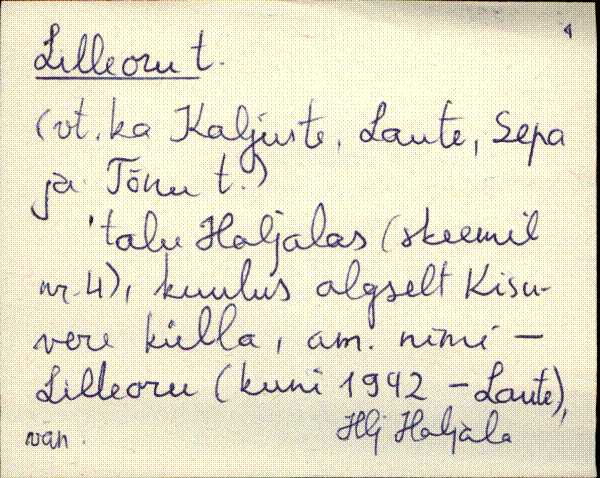 4
Lilleoru t.
(vt. ka Kaljuste, Laute, Sepa
ja Tõnu t.)
'talu Haljalas (skeemil
nr. 4), kuulus algselt Kisu-
vere külla, am. nimi –
Lilleoru (kuni 1942 – Laute),
Hlj Haljala